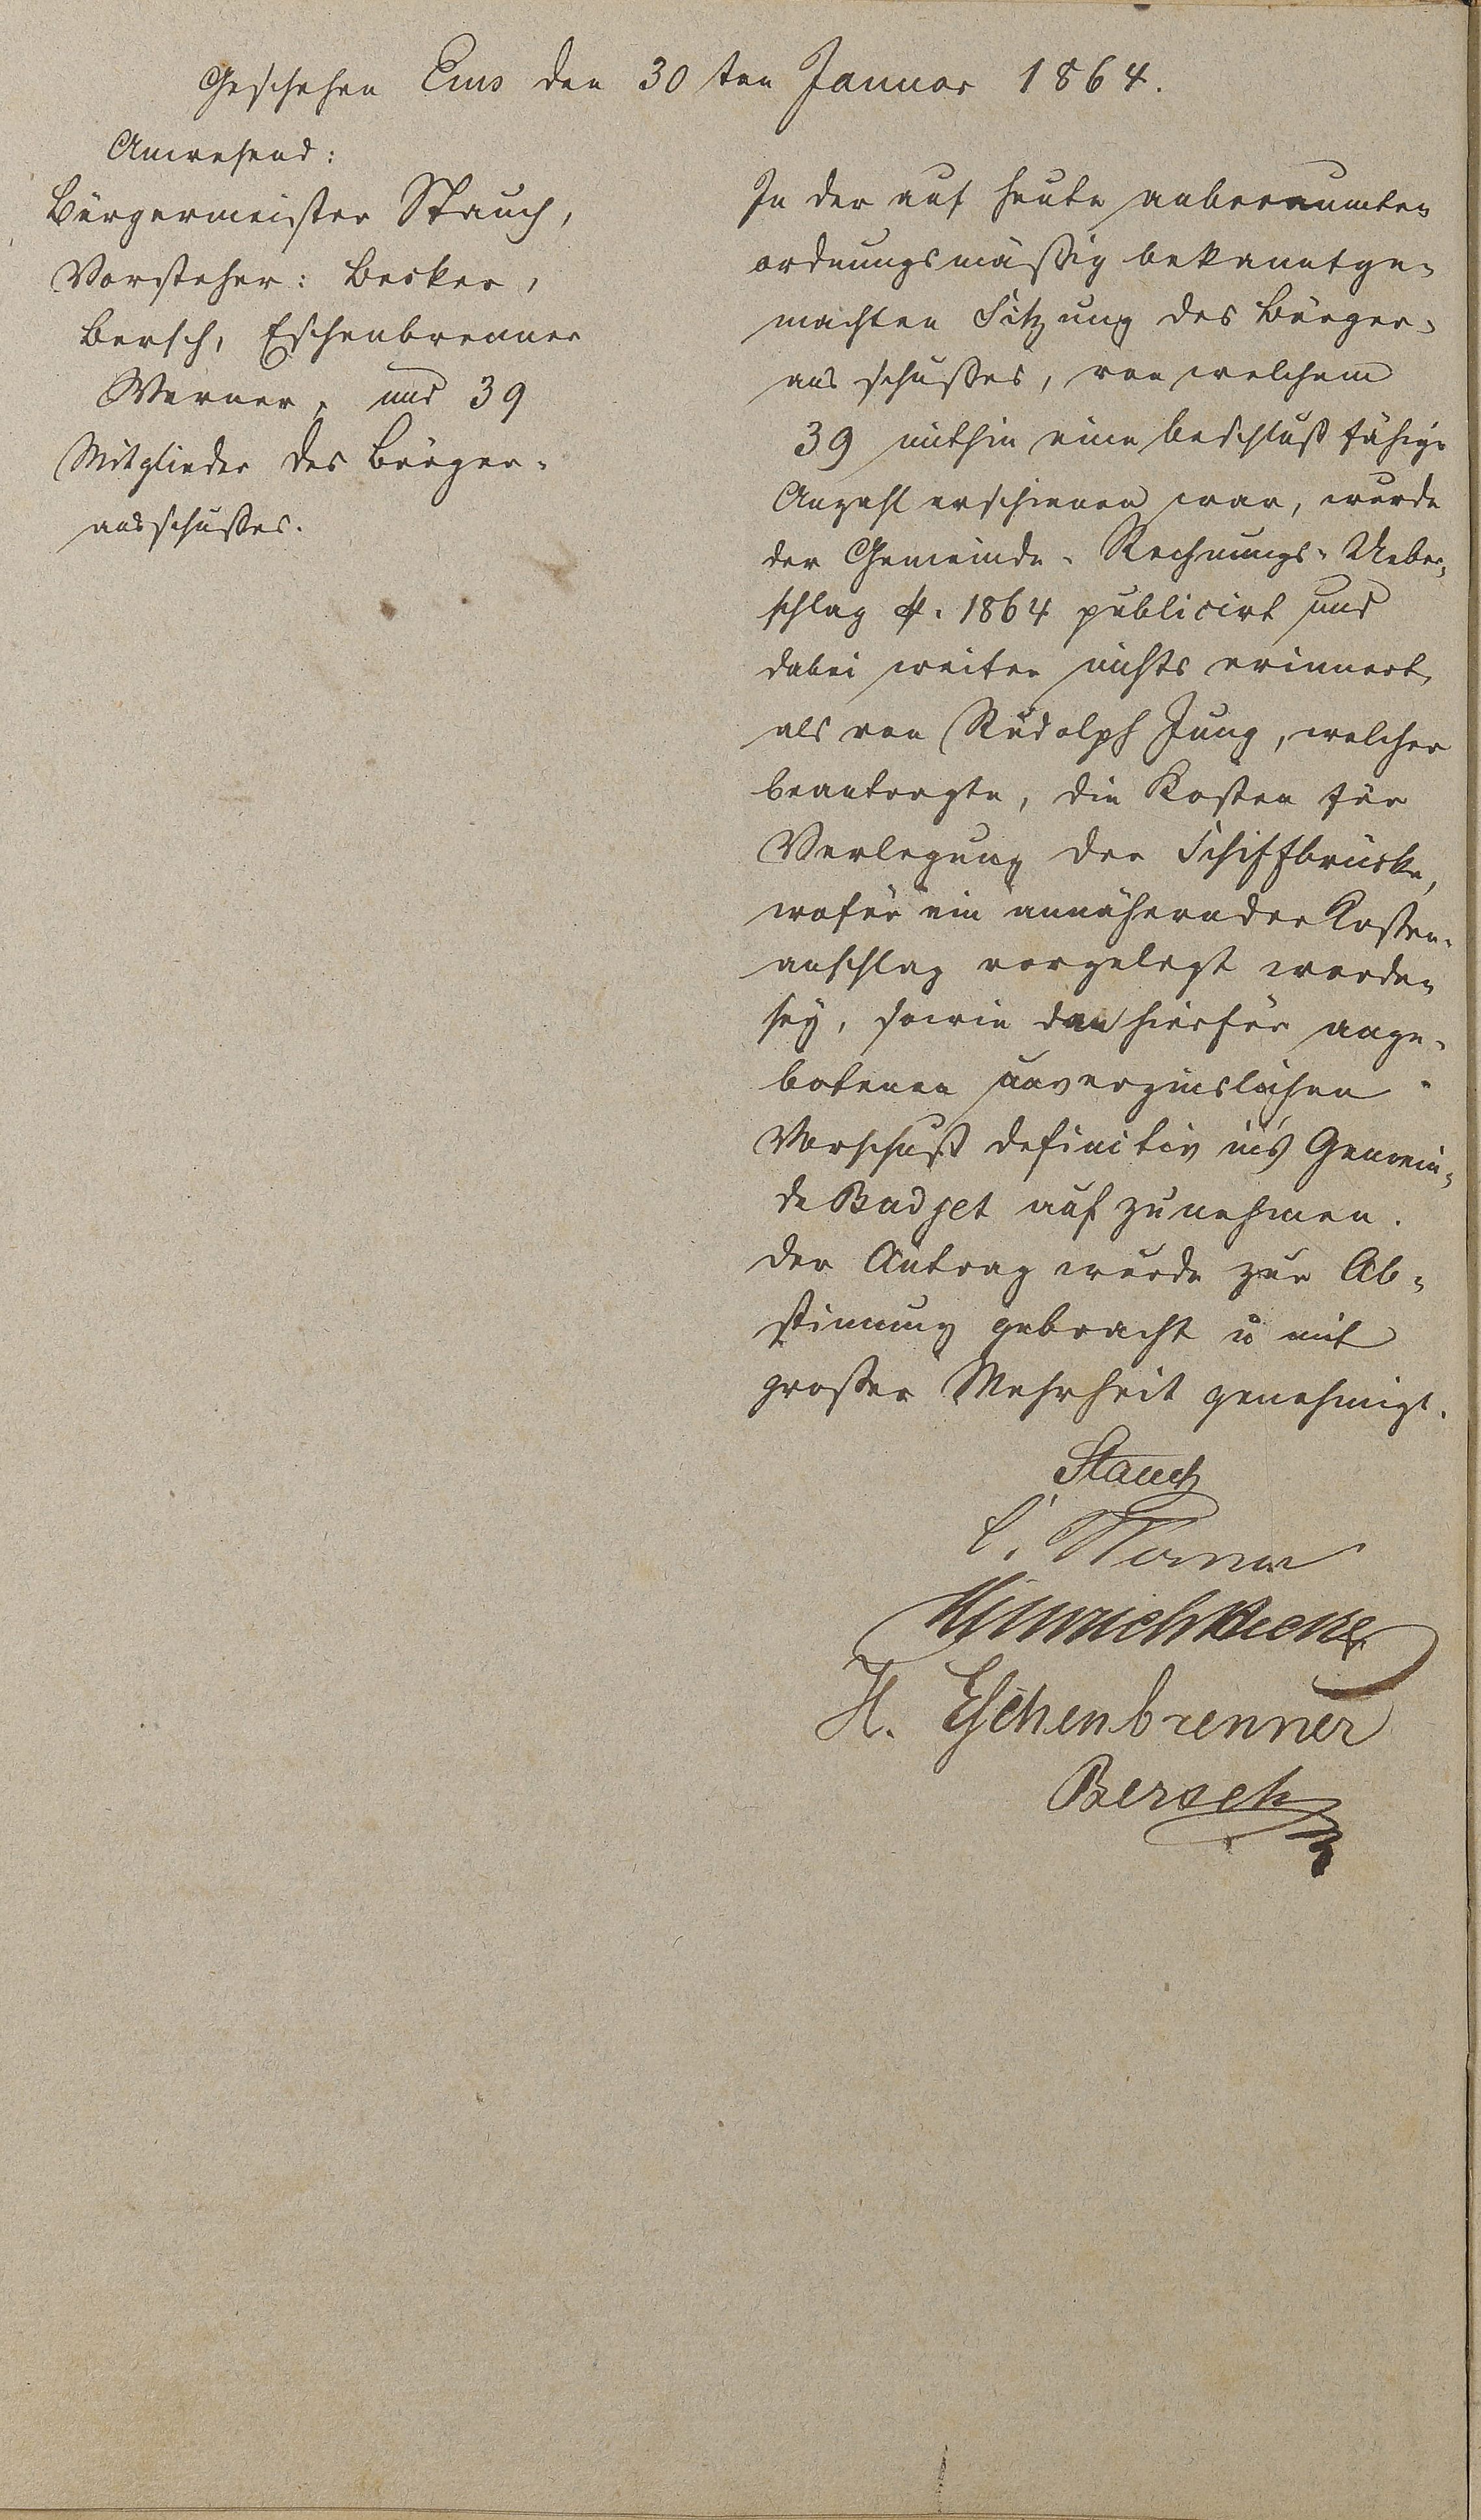 Geschehen Ems den 30ten Januar 1864.
Anwesend:
Bürgermeister Stauch,
Vorsteher: Becker,
Bersch, Eschenbrenner
Werner, und 39
Mitglieder des Bürger-
ausschußes.
In der auf heute anberaumten
ordnungsmäßig bekanntge-
machten Sitzung des Bürger-
ausschußes, von welchem
39 mithin eine beschlußfähige
Anzahl erschienen war, wurde
der Gemeinde-Rechnungs-Ueber-
schlag p. 1864 publicirt und
dabei weiter nichts erinnert,
als von Rudolph Jung, welcher
beantragte, die Kosten für
Verlegung der Schiffbrücke,
wofür ein annähernder Kosten-
anschlag vorgelegt worden
sey, sowie den hierfür ange-
botenen unverzinslichen
Vorschuß definitiv in's Gemein-
de Budjet aufzunehmen.
Der Antrag wurde zur Ab-
stimmung gebracht u mit
großer Mehrheit genehmigt.
Stauch
C. Werner
Heinrich Becker
H. Eschenbrenner
Bersch